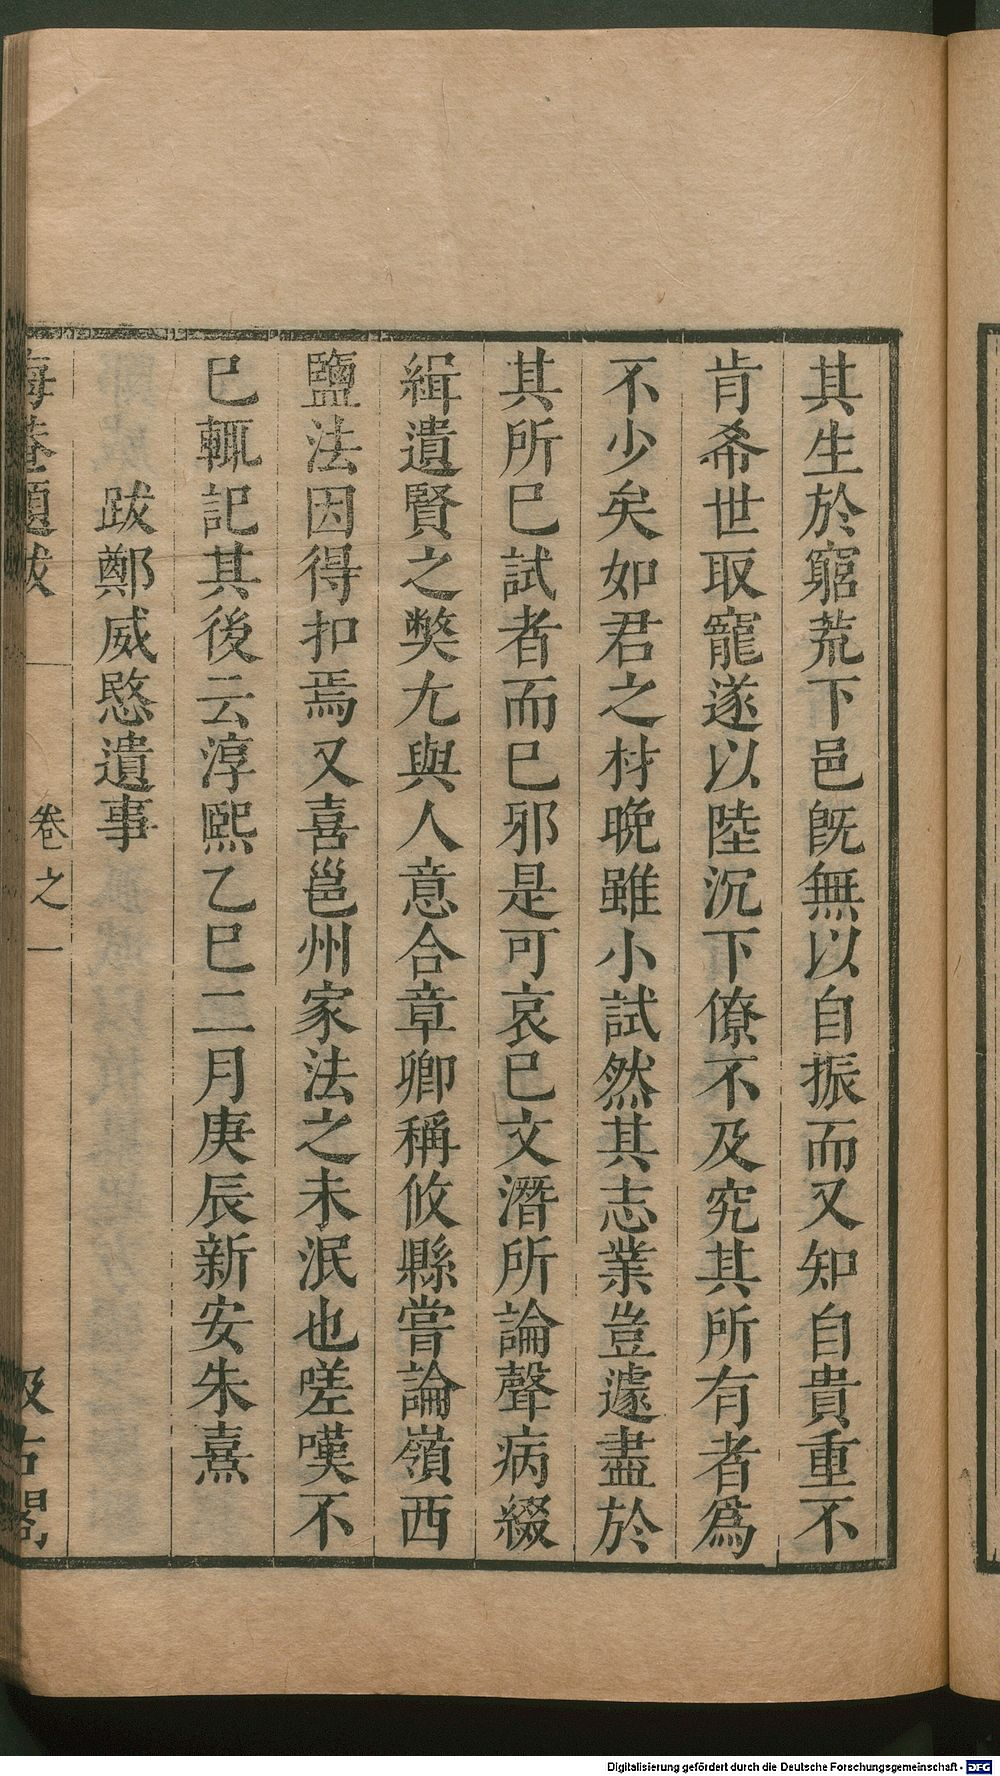 其生於窮荒下邑既無以自振而又知自貴重不
肯希世取寵遂以陸沉下僚不及究其所有者爲
不少矣如君之材晚雖小試然其志業豈遽盡於
其所巳試者而巳邪是可哀巳文潛所論聲病綴
緝遺賢之獘尤與人意合章卿稱攸縣嘗論嶺西
鹽法因得扣焉又喜邕州家法之未泯也嗟嘆不
巳輒記其後云淳熙乙巳二月庚辰新安朱熹
跋鄭威愍遺事
海菴題跋
卷之一
汲古閣
Digitalisierung gefördert durch die Deutsche Forschungsgemeinschaft - DFG